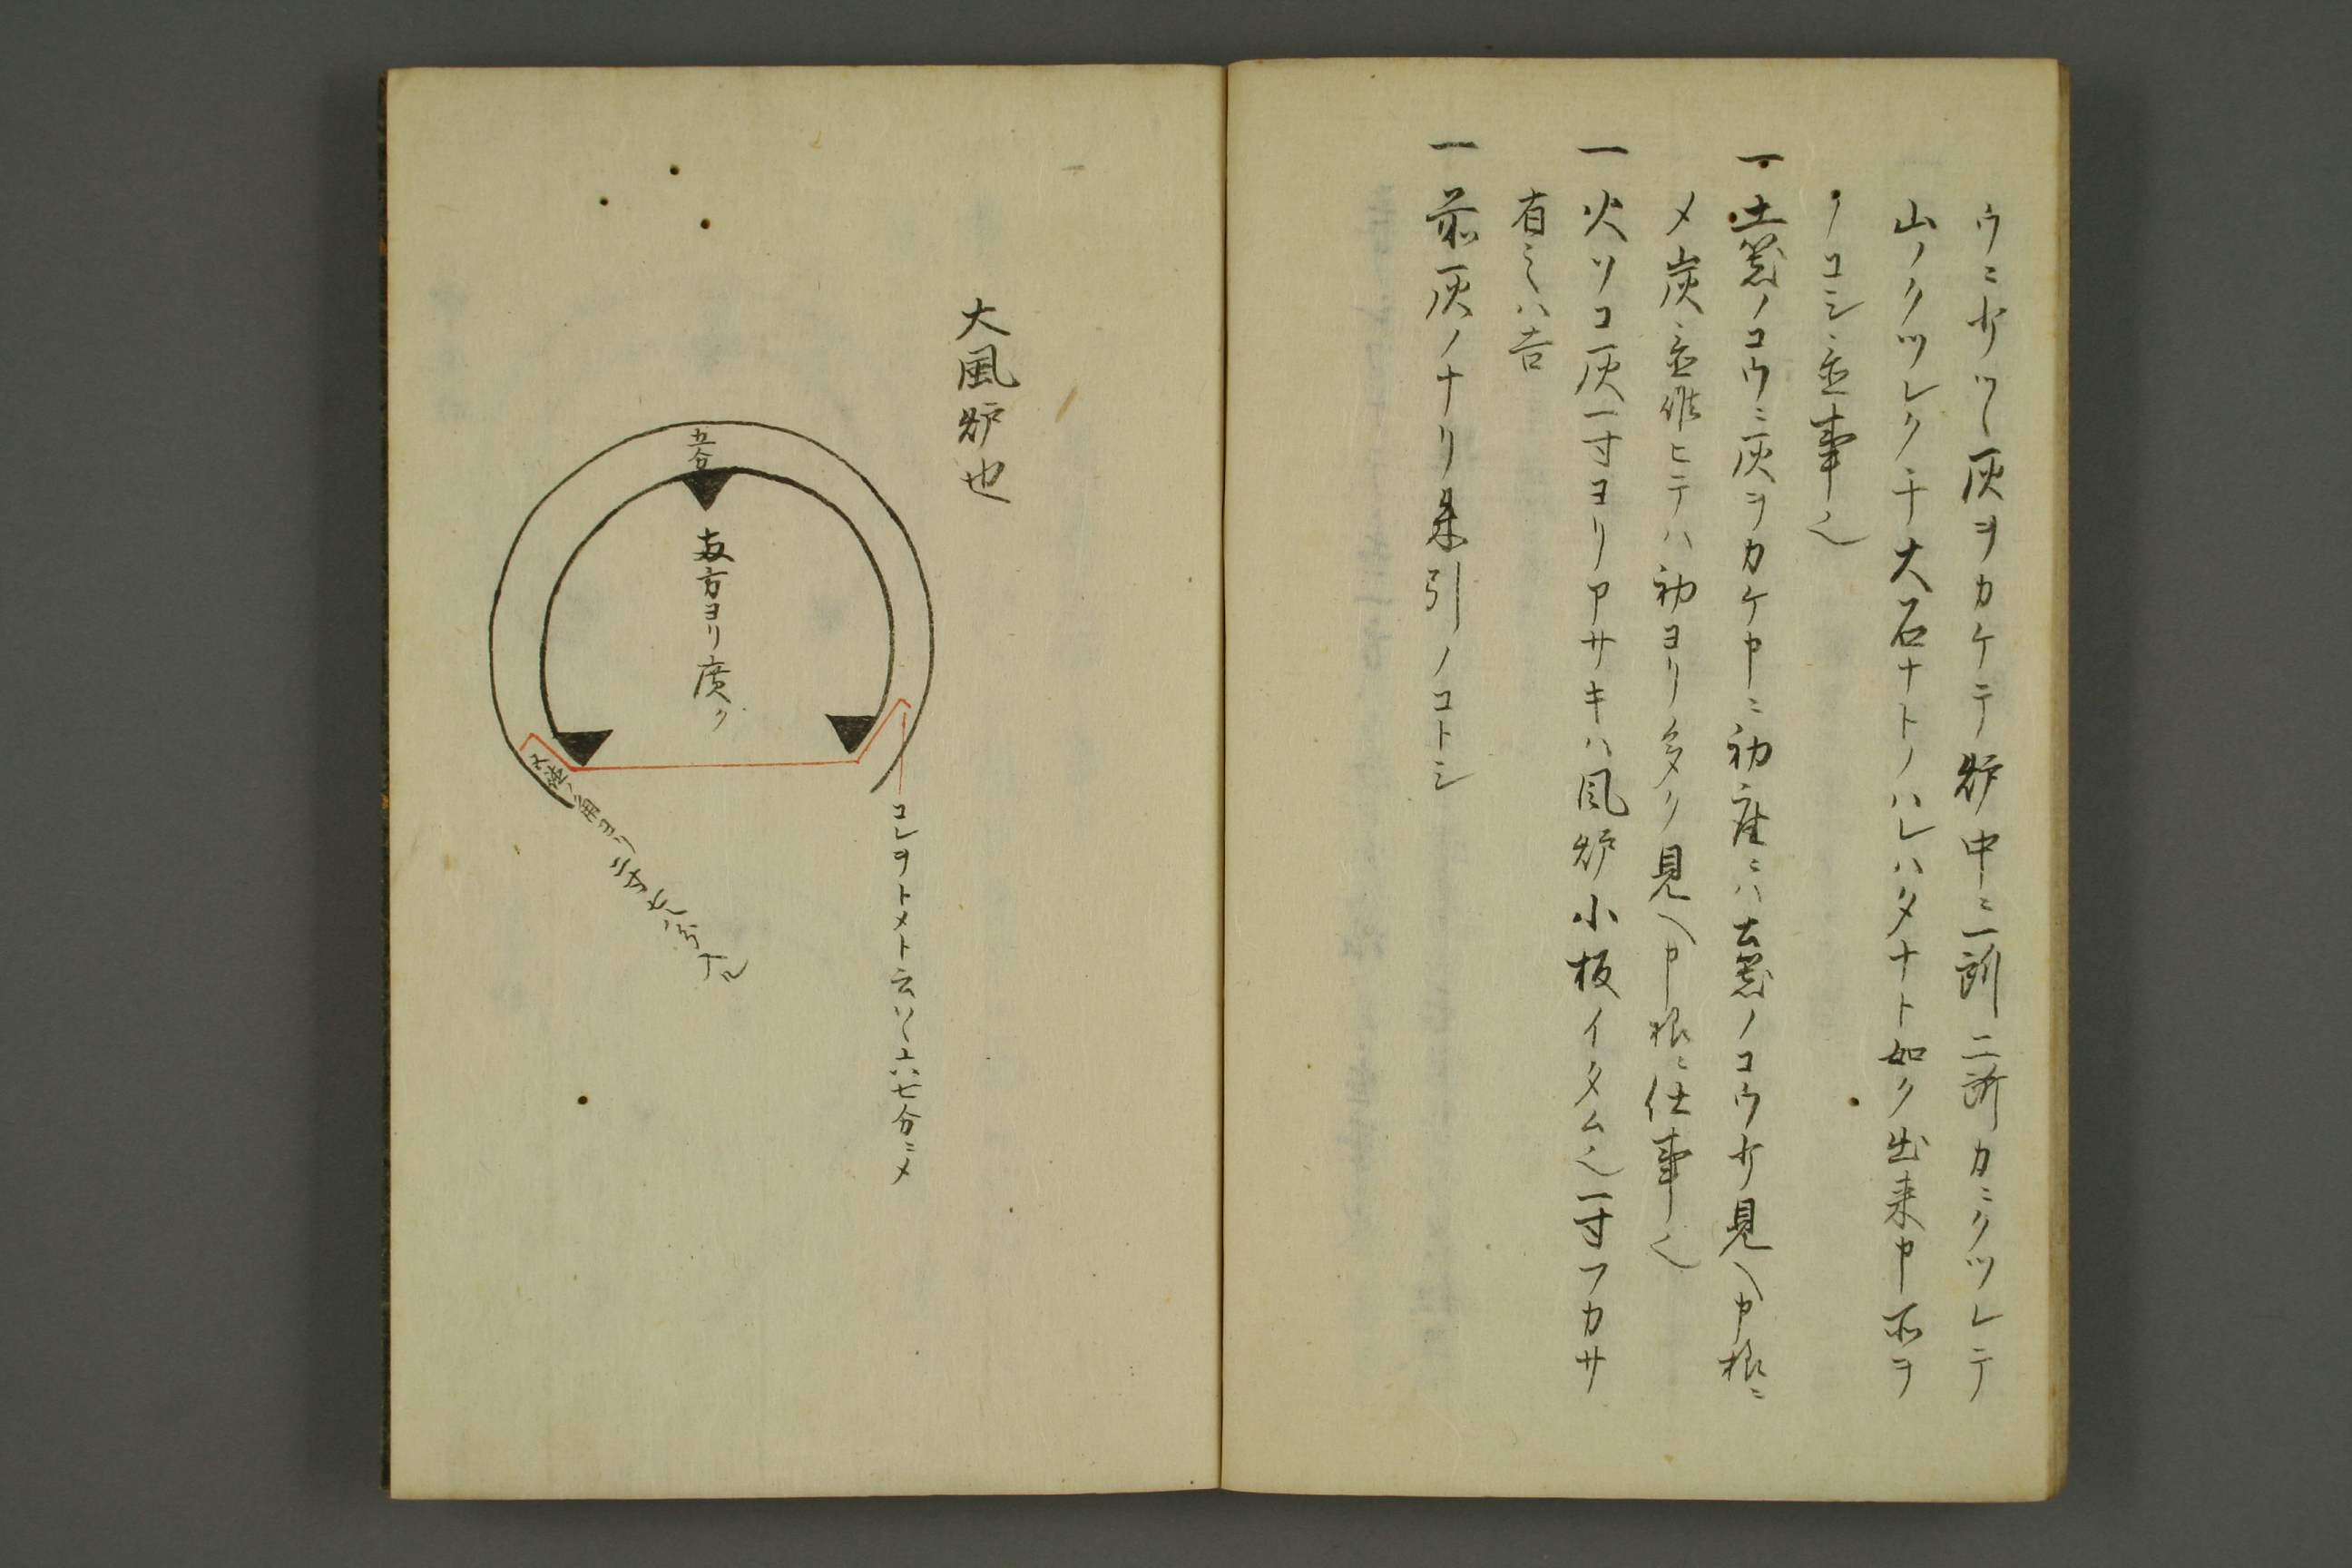 ウニ少ツヽ灰ヲカケテ炉中ニ一剖二斫カニクツレテ
山ノクツレクチ大石ナトノハレハタナト如ク出来申所ヲ
ノコシ置事也
一土窓ノコウニ灰ヲカケ申ニ初座ニハ土窓ノコウ少見ヘ申様ニ
メ炭ニ並作ヒテハ初ヨリ多ク見ヘ申様ニ仕事也
一火ソコ灰一寸ヨリアサキハ風炉小板イタム也一寸フカサ
有之ハ吉
一前灰ノナリ朱引ノコトシ
大風炉也
五分
両方ヨリ廣ク
コレヲトメト云ソヽ六七分ニメ
角ヨリ